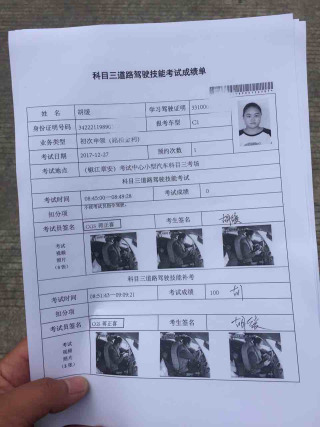 科目三道路驾驶技能考试成绩单
姓 名 胡媛 学习驾驶证明 33100
身份证明号码 34222119890 报考车型 C1
业务类型 初次申领
考试日期 2017-12-27 预约次数 1
考试地点 考试中心小型汽车科目三考场
科目三道路驾驶技能考试
考试时间 08:45:00—08:49:28 考试成绩 0
扣分项
考试员签名 考生签名 胡媛
考试
视频
照片
(3张)
科目三道路驾驶技能补考
考试时间 08:51:43—09:09:21 考试成绩 100
扣分项
考试员签名 考生签名 胡媛
考试
视频
照片
(3张)